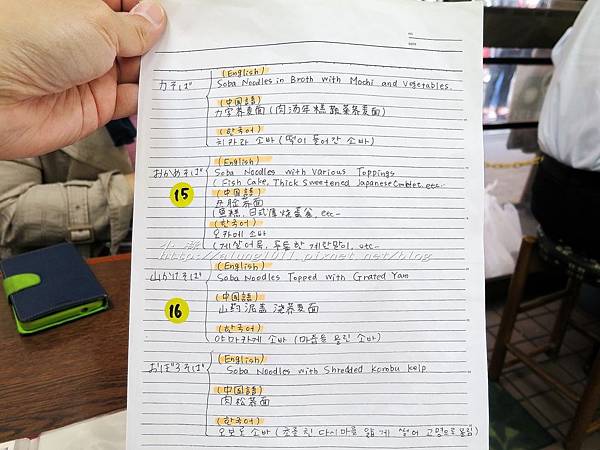 力そば
(English)
Soba Noodles in Broth with Mochi and Vegetables.
(中国語)
力字蕎麦面(肉汤年糕蔬菜荞麦面)
(한국어)
치카라 소바 (떡이 들어간 소바)
おかめそば
15
(English)
Soba Noodles with Various Toppings
(Fish Cake, Thick Sweetened Japanese Omblet, etc-
(中国語)
荞麦面
日式厚烧蛋 etc-
(한국어)
오카메 소바
(게살어묵, 두툼한 계란말이, etc-
http://alung1011.pixnet.net/blog
山かけそば
16
(English)
Soba Noodles Topped with Grated Yam
(中国語)
山药泥盖浇荞麦面
(한국어)
야마카케 소바 (마즙을 올린 소바)
おぼろそば
(English)
Soba Noodles with Shredded Konobu kelp
(中国語)
肉松荞面
(한국어)
오보로 소바 (다시마를 얇게 썰어 고명으로 올림)